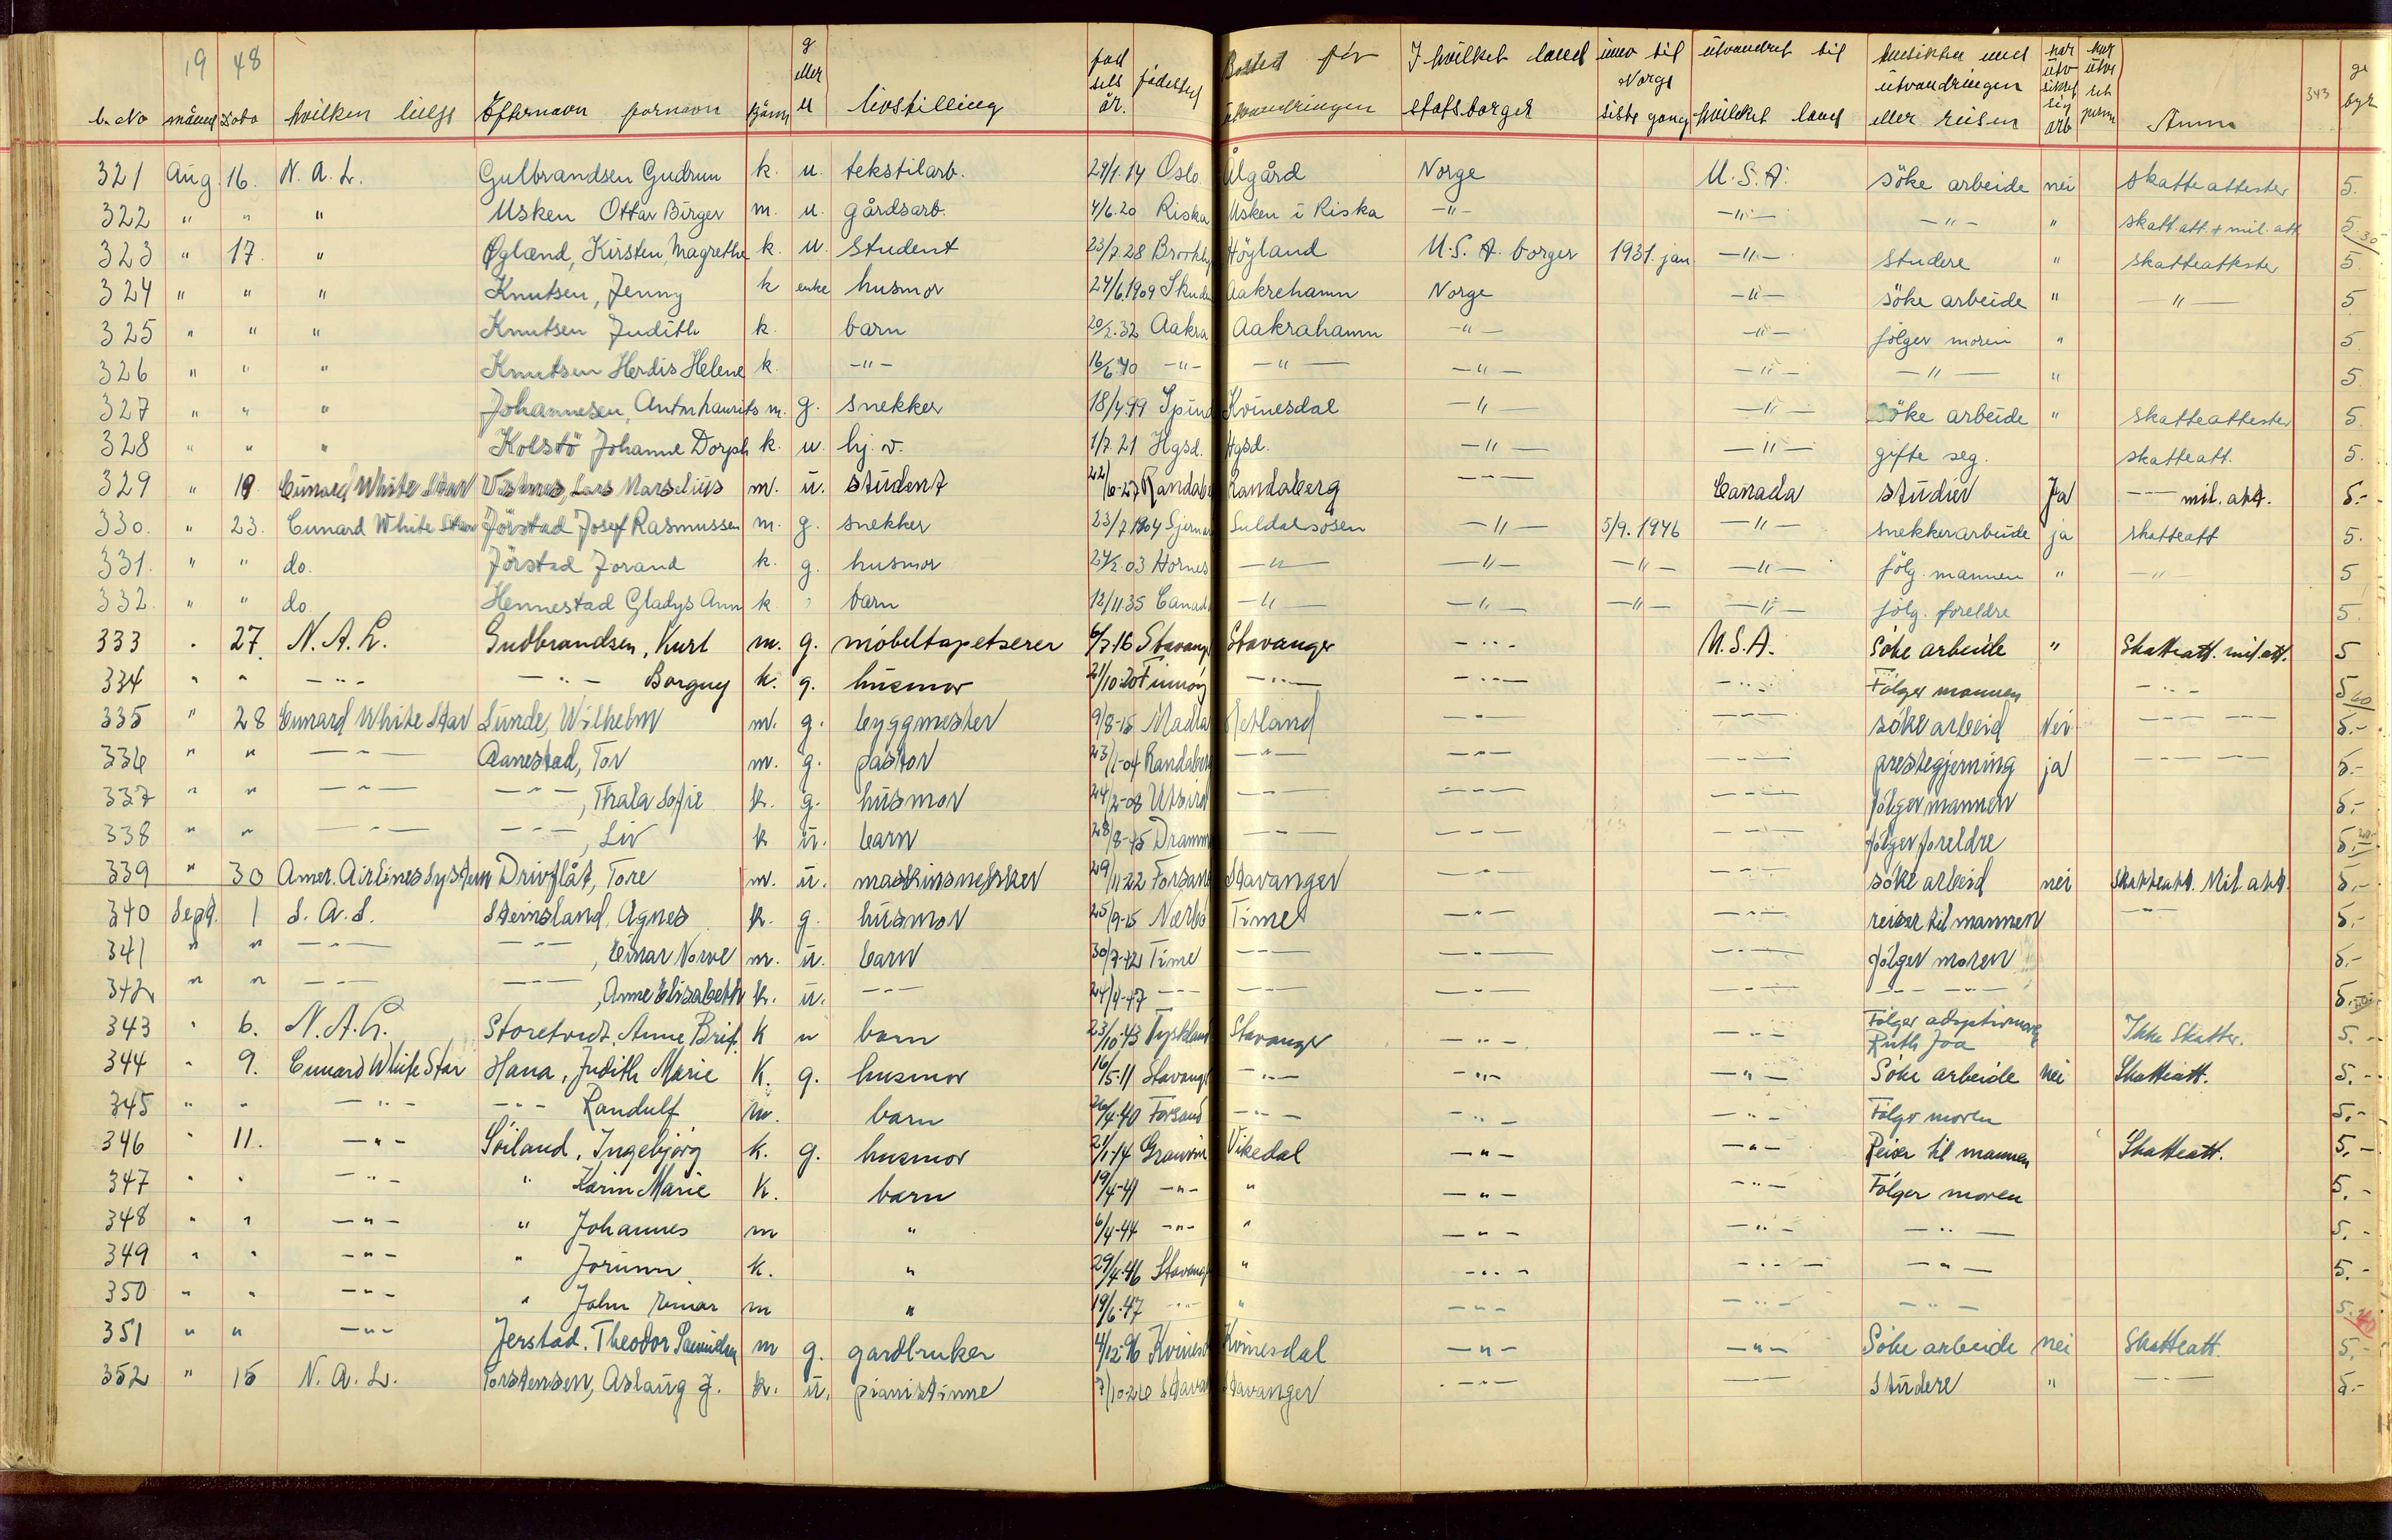 19 48
b. No måned Dato hvilken linje Efternavn fornavn kjönn g eller u livstilling föd sels år. födested Bosted för utvandringen I hvilket land statsborger innv til Norge siste gang utvandret til hvilket land hensikten med utvandringen eller reisen har utv sikret sig arb Anm 343 ge byr
321 Aug. 16. N. A. L. Gulbrandsen Gudrun k. u. tekstilarb. 29/1.14 Oslo. Ålgård Norge U. S. A. söke arbeide nei skatteattester 5.
322 " " " Usken Ottar Birger m. u. gårdsarb. 4/6.20 Riska Usken i Riska -"- -"- -"- " skatt.att. + mil. att 5.30
323 " 17. " Øgland, Kirsten, Magrethe k. u. student 23/7.28 Höyland U. S. A. borger 1931. jan. -"- studere " skatteattester 5.
324 " " " Knutsen, Jenny k enke husmor 24/6.1909 Skuden Aakrehamn Norge -"- söke arbeide " -"- 5.
325 " " " Knutsen Judith k. barn 20/2.32 Aakra Aakrahamn -"- -"- fölger moren " 5.
326 " " " Knutsen Herdis Helene k. -"- 16/6.40 -"- -"- -"- -"- -"- " 5.
327 " " " Johannesen, Anton Laurits m. g. snekker 18/4.99 Spind Kvinesdal -"- -"- söke arbeide " skatteattester 5.
328 " " " Kolstö Johanne Dorph k. u. hj. v. 1/7.21 Hgsd. Hgsd. -"- -"- gifte seg. skatteatt. 5.
329 " 19. Cunard White Star Vistnes, Lars Marselius m. u. student 22/6-27 Randabe Randaberg -"- Canada studier Ja -"- mil. att. 5.-
330. " 23. Cunard White Star Jörstad Josef Rasmussen m. g. snekker 23/7 1904 Sjernar Suldalsosen -"- 5/9. 1946 -"- snekkerarbeide ja skatteatt 5.
331. " " do. Jörstad Jorand k. g. husmor 24/2.03 Hornes -"- -"- -"- -"- fölg. mannen " -"- 5
332. " " do. Hennestad Gladys Ann k " barn 12/11.35 Canada -"- -"- -"- -"- fölg. foreldre 5.
333 " 27. N. A. L. Gudbrandsen, Kurt m. g. möbeltapetserer 6/7.16 Stavang Stavanger -"- U.S.A. Söke arbeide " Skatteatt. mil.att. 5
334 " " -"- -"- Borguy k. g. husmor 21/10.20 Finnöy -"- -"- -"- Fölger mannen -"- 5 60
335 " 28 Cunard White Star Lunde, Wilhelm m. g. byggmester 9/8-15 Madla Hetland -"- -"- söke arbeid Nei -"- -"- 5.-
336 " " -"- Aanestad, Tor m. g. pastor 23/1-04 Randaberg -"- -"- -"- prestegjerning ja -"- -"- 5.-
337 " " -"- -"-, Thala Sofie k. g. husmor 24/2-08 Utsira -"- -"- -"- fölger mannen 5.-
338 " " -"- -"-, Liv k u. barn 28/8-45 Dramm -"- -"- -"- fölger foreldre 5.-
339 " 30 Amer. Airlines System Drivflåt, Tore m. u. maskinsnekker 29/11-22 Forsand Stavanger -"- -"- söke arbeid nei skatteatt. Mil. att. 5.-
340 Sept. 1 S. A. S. Steinsland, Agnes k. g. husmor 25/9-15 Nærbö Time -"- -"- reiser til mannen -"- 5.-
341 " " -"- -"-, Einar Norve m. u. barn 30/7-42 Time -"- -"- -"- fölger moren 5.-
342 " " -"- -"-, Anne Elisabeth k. u. -"- 24/4-47 -"- -"- -"- -"- -"- -"- 5.-
343 " 6. N. A. L. Storetvedt, Anne Brit. K u barn 23/10.43 Tyskland Stavanger -"- -"- Fölger adoptivmor Ruth Joa Ikke Skatter. 5.-
344 " 9. Cunard White Star Hana, Judith Marie K. g. husmor 16/5.11 Stavang -"- -"- -"- Söke arbeide nei Skatteatt. 5.-
345 " " -"- -"- Randulf m. barn 26/4.40 Forsand -"- -"- -"- Fölger moren 5.-
346 " 11. -"- Söiland, Ingebjörg k. g. husmor 21/1.14 Granvin Vikedal -"- -"- Reiser til mannen Skatteatt. 5.-
347 " " -"- " Karin Marie K. barn 19/4-41 -"- " -"- -"- Fölger moren 5.-
348 " " -"- " Johannes m " 6/4-44 -"- " -"- -"- -"- 5.-
349 " " -"- " Jorunn k. " 29/4.46 Stavang " -"- -"- -"- 5.-
350 " " -"- " John Einar m " 19/6.47 -"- " -"- -"- -"- 5.-
351 " " -"- Jerstad. Theodor Samuelsen m g. gardbruker 4/12-96 Kvinesd Kvinesdal -"- -"- Söke arbeide nei Skatteatt. 5.-
352 " 15 N. A. L. Torstensen, Aslaug J. k. u. pianistinne 7/10-26 Stavan Stavanger -"- -"- studere " -"- 5.-